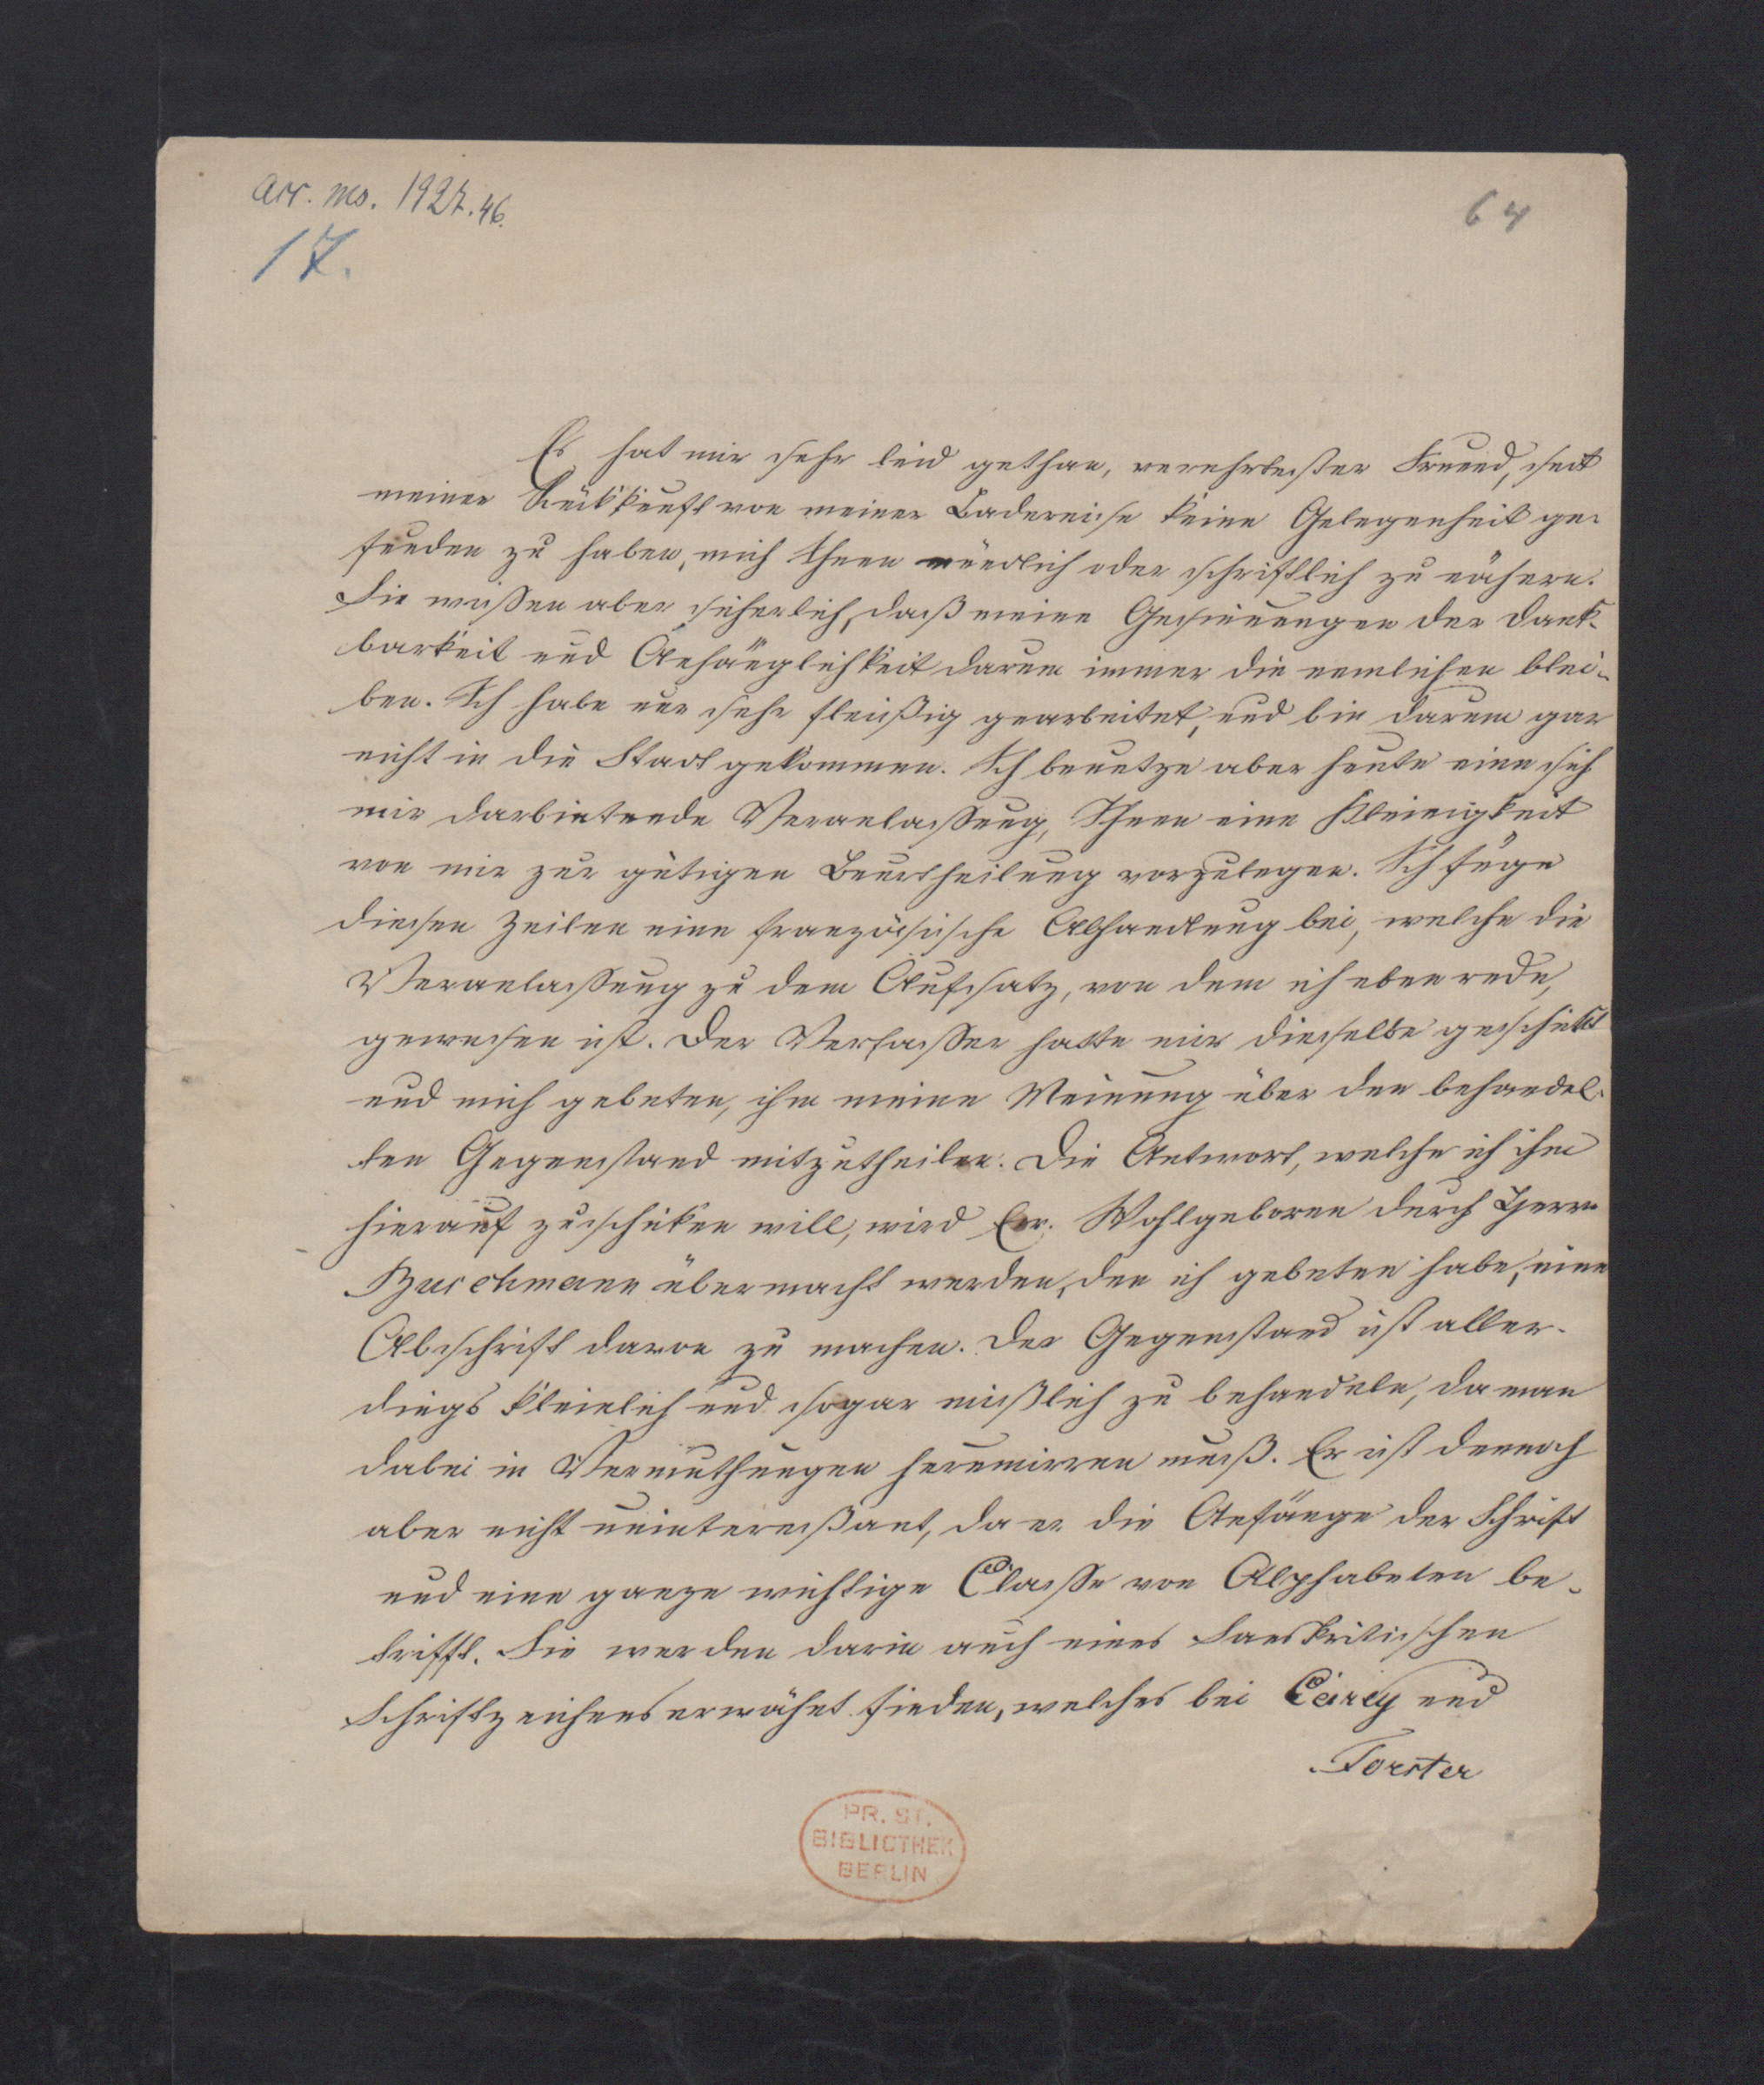 acc. ms. 1927.46.
64
17.
Es hat mir sehr leid gethan, verehrtester Freund, seit
meiner Rückkunft von meiner Badereise keine Gelegenheit ge-
funden zu haben, mich Ihnen mündlich oder schriftlich zu nähern.
Sie wissen aber sicherlich, daß meine Gesinnungen der Dank-
barkeit und Anhänglichkeit darum immer die nemlichen blei-
ben. Ich habe nur sehr fleißig gearbeitet, und bin darum gar
nicht in die Stadt gekommen. Ich benutze aber heute eine sich
mir darbietende Veranlassung, Ihnen eine Kleinigkeit
von mir zur gütigen Beurtheilung vorzulegen. Ich füge
diesen Zeilen eine französische Abhandlung bei, welche die
Veranlassung zu dem Aufsatz, von dem ich eben rede,
gewesen ist. Der Verfasser hatte mir dieselbe geschickt
und mich gebeten, ihm meine Meinung über den behandel-
ten Gegenstand mitzutheilen. Die Antwort, welche ich ihm
hierauf zuschicken will, wird Ew. Wohlgeboren durch Herrn
Buschmann übermacht werden, den ich gebeten habe, eine
Abschrift davon zu machen. Der Gegenstand ist aller-
dings kleinlich und sogar mißlich zu behandeln, da man
dabei in Vermuthungen herumirren muß. Er ist dennoch
aber nicht uninteressant, da er die Anfänge der Schrift
und eine ganze wichtige Classe von Alphabeten be-
trifft. Sie werden darin auch eines Sanskritischen
Schriftzeichens erwähnt finden, welches bei Carey und
Forster
PR. ST.
BIBLIOTHEK
BERLIN